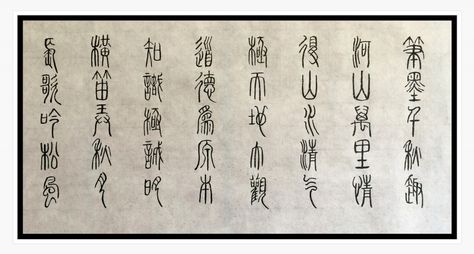 筆墨千秋趣
河山萬里情
得山水清氣
極天地大觀
道德為原本
知識極誠明
橫笛弄秋月
長歌吟松風